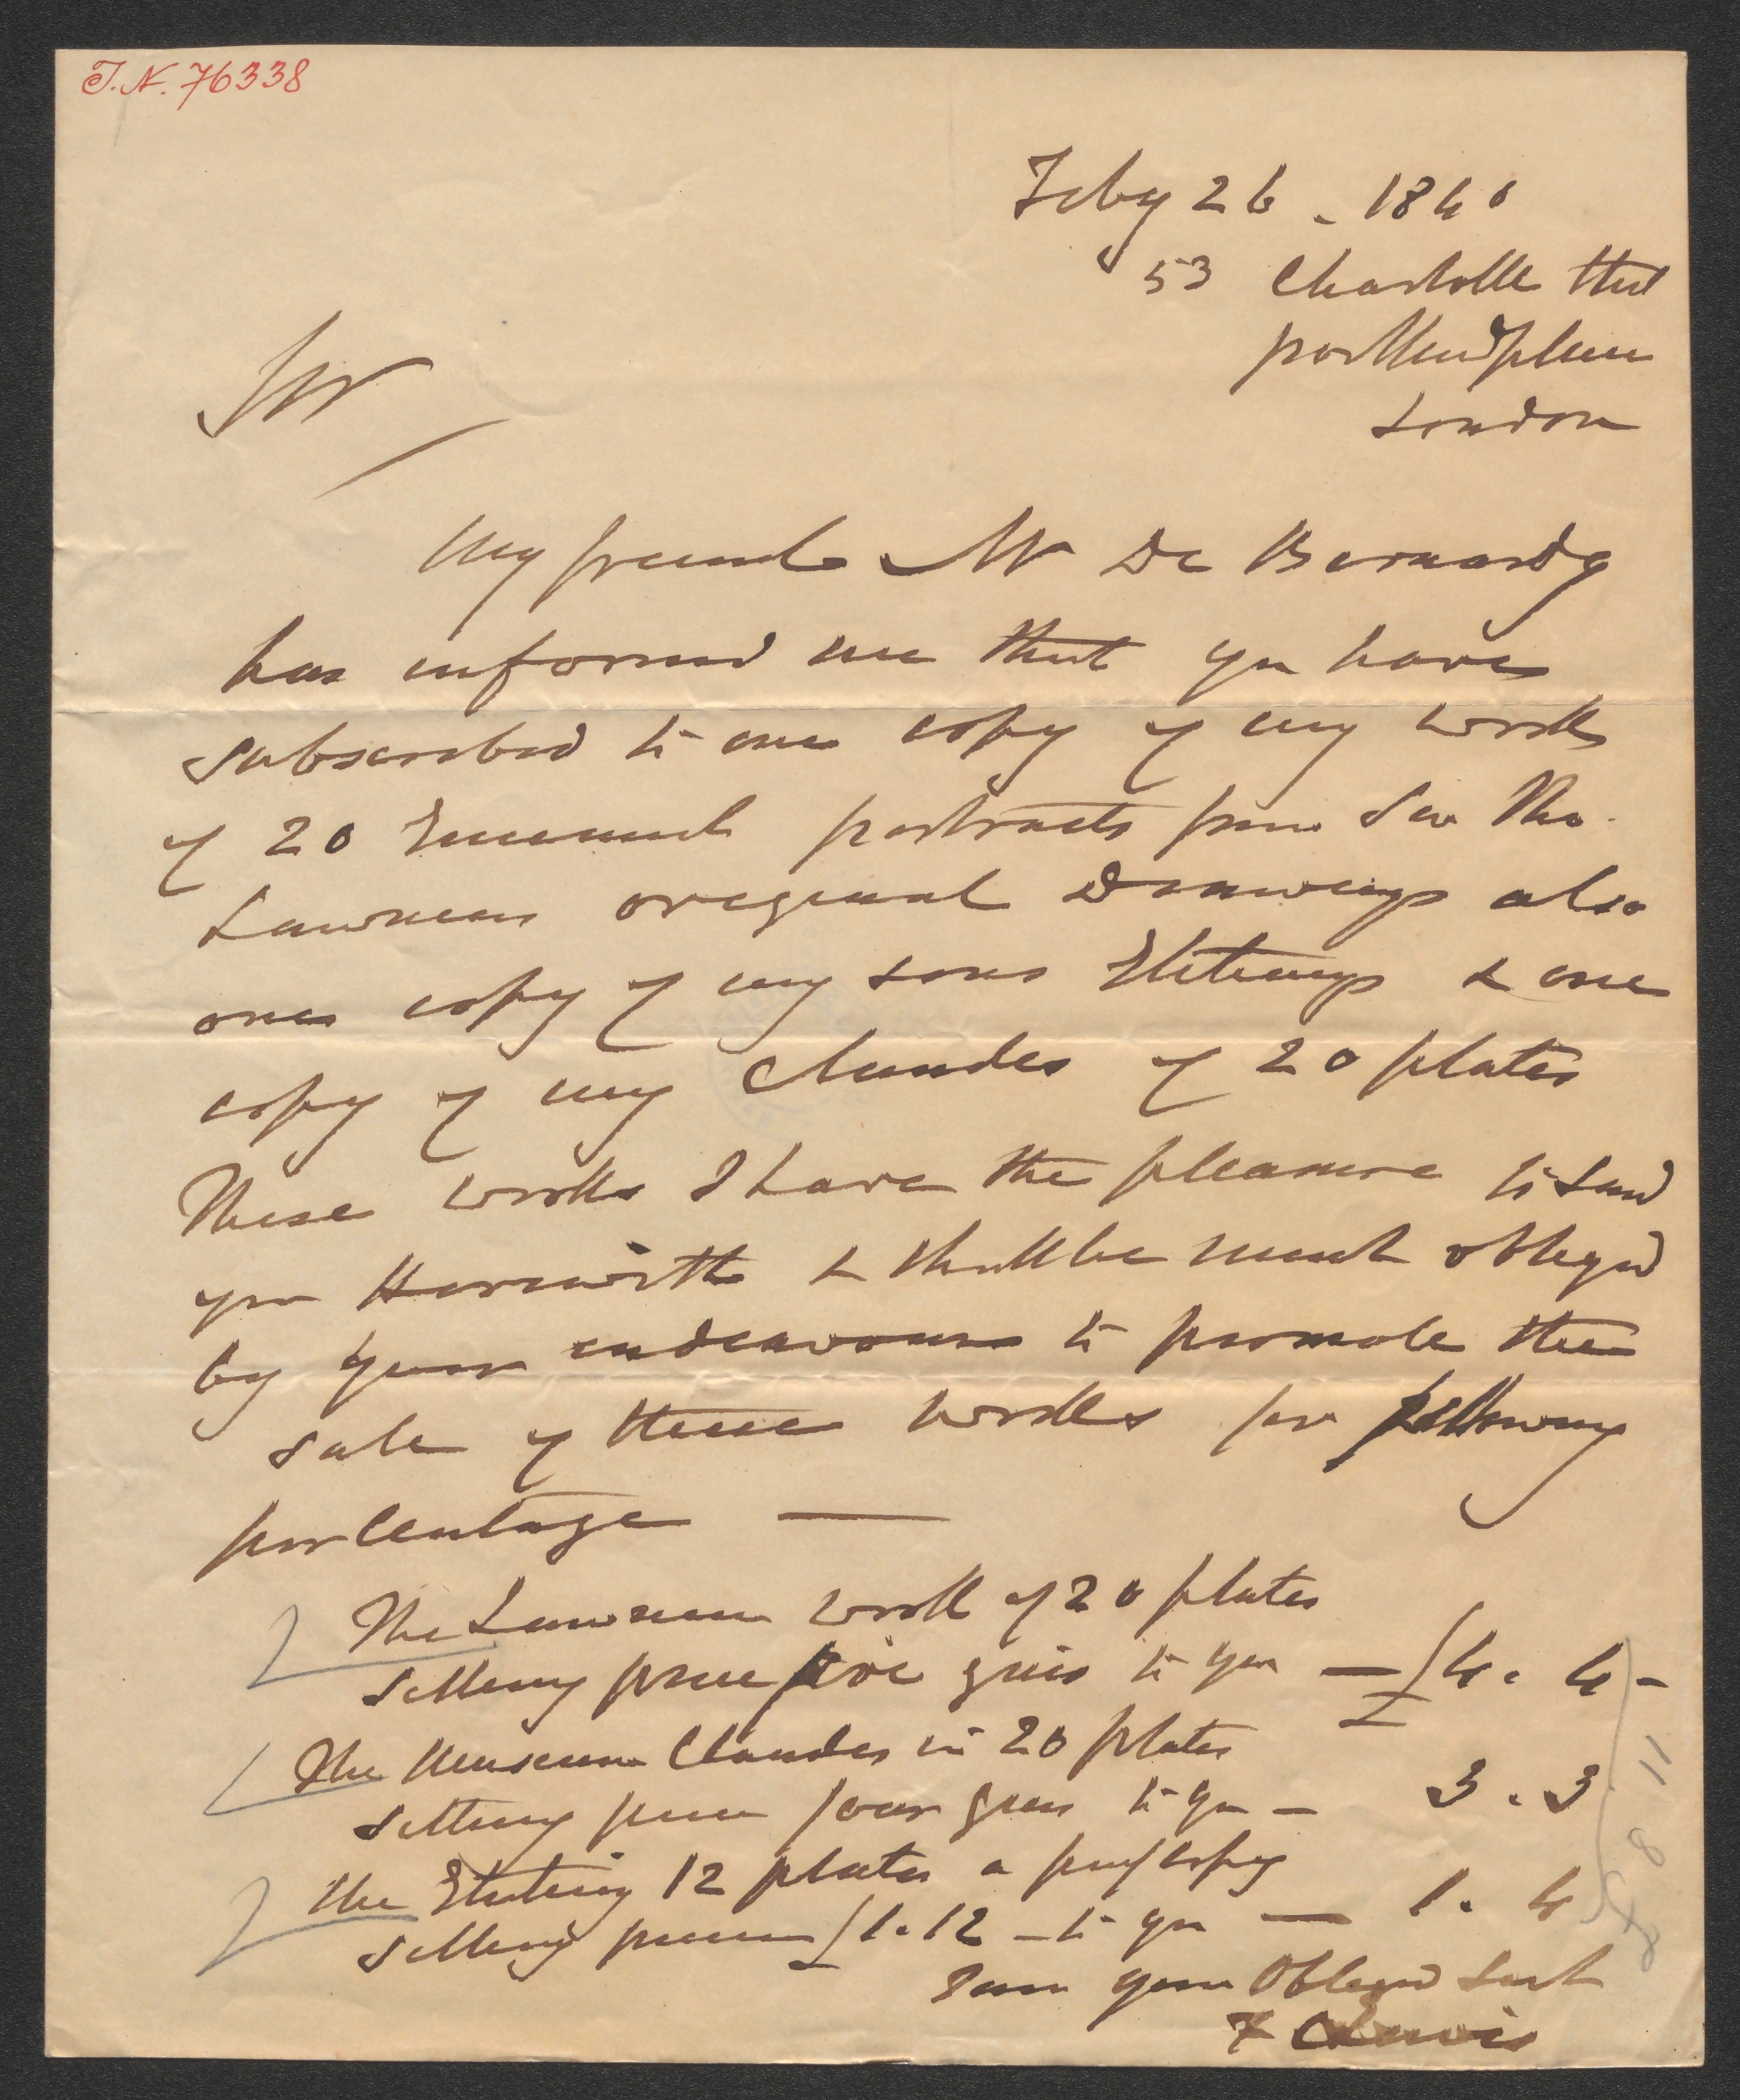 J.N. 76338
Feby 26 - 1840
53 Charlotte Street
portland place
London
Sir
My friend Mr De Bernardy
has informed me that you have
subscribed to one copy of my work
of 20 Eminent portraits from Sir Tho.
Lawrences original Drawings also
one copy of my sons Etchings & one
copy of my Claudes of 20 plates
These works I have the pleasure to send
you Herewith & shall be much obliged
by your endeavours to promote the
sale of these works for following
per Centage —
The Lawrence work of 20 plates
selling price five gnis to you — £4. 4 -
The Museum Claudes in 20 plates
selling price four gnes to you - 3. 3
The Etching 12 plates a proof copy
selling price £1.12 - to you — 1. 4
£8 11
I am your Obliged Servt
F C Lewis